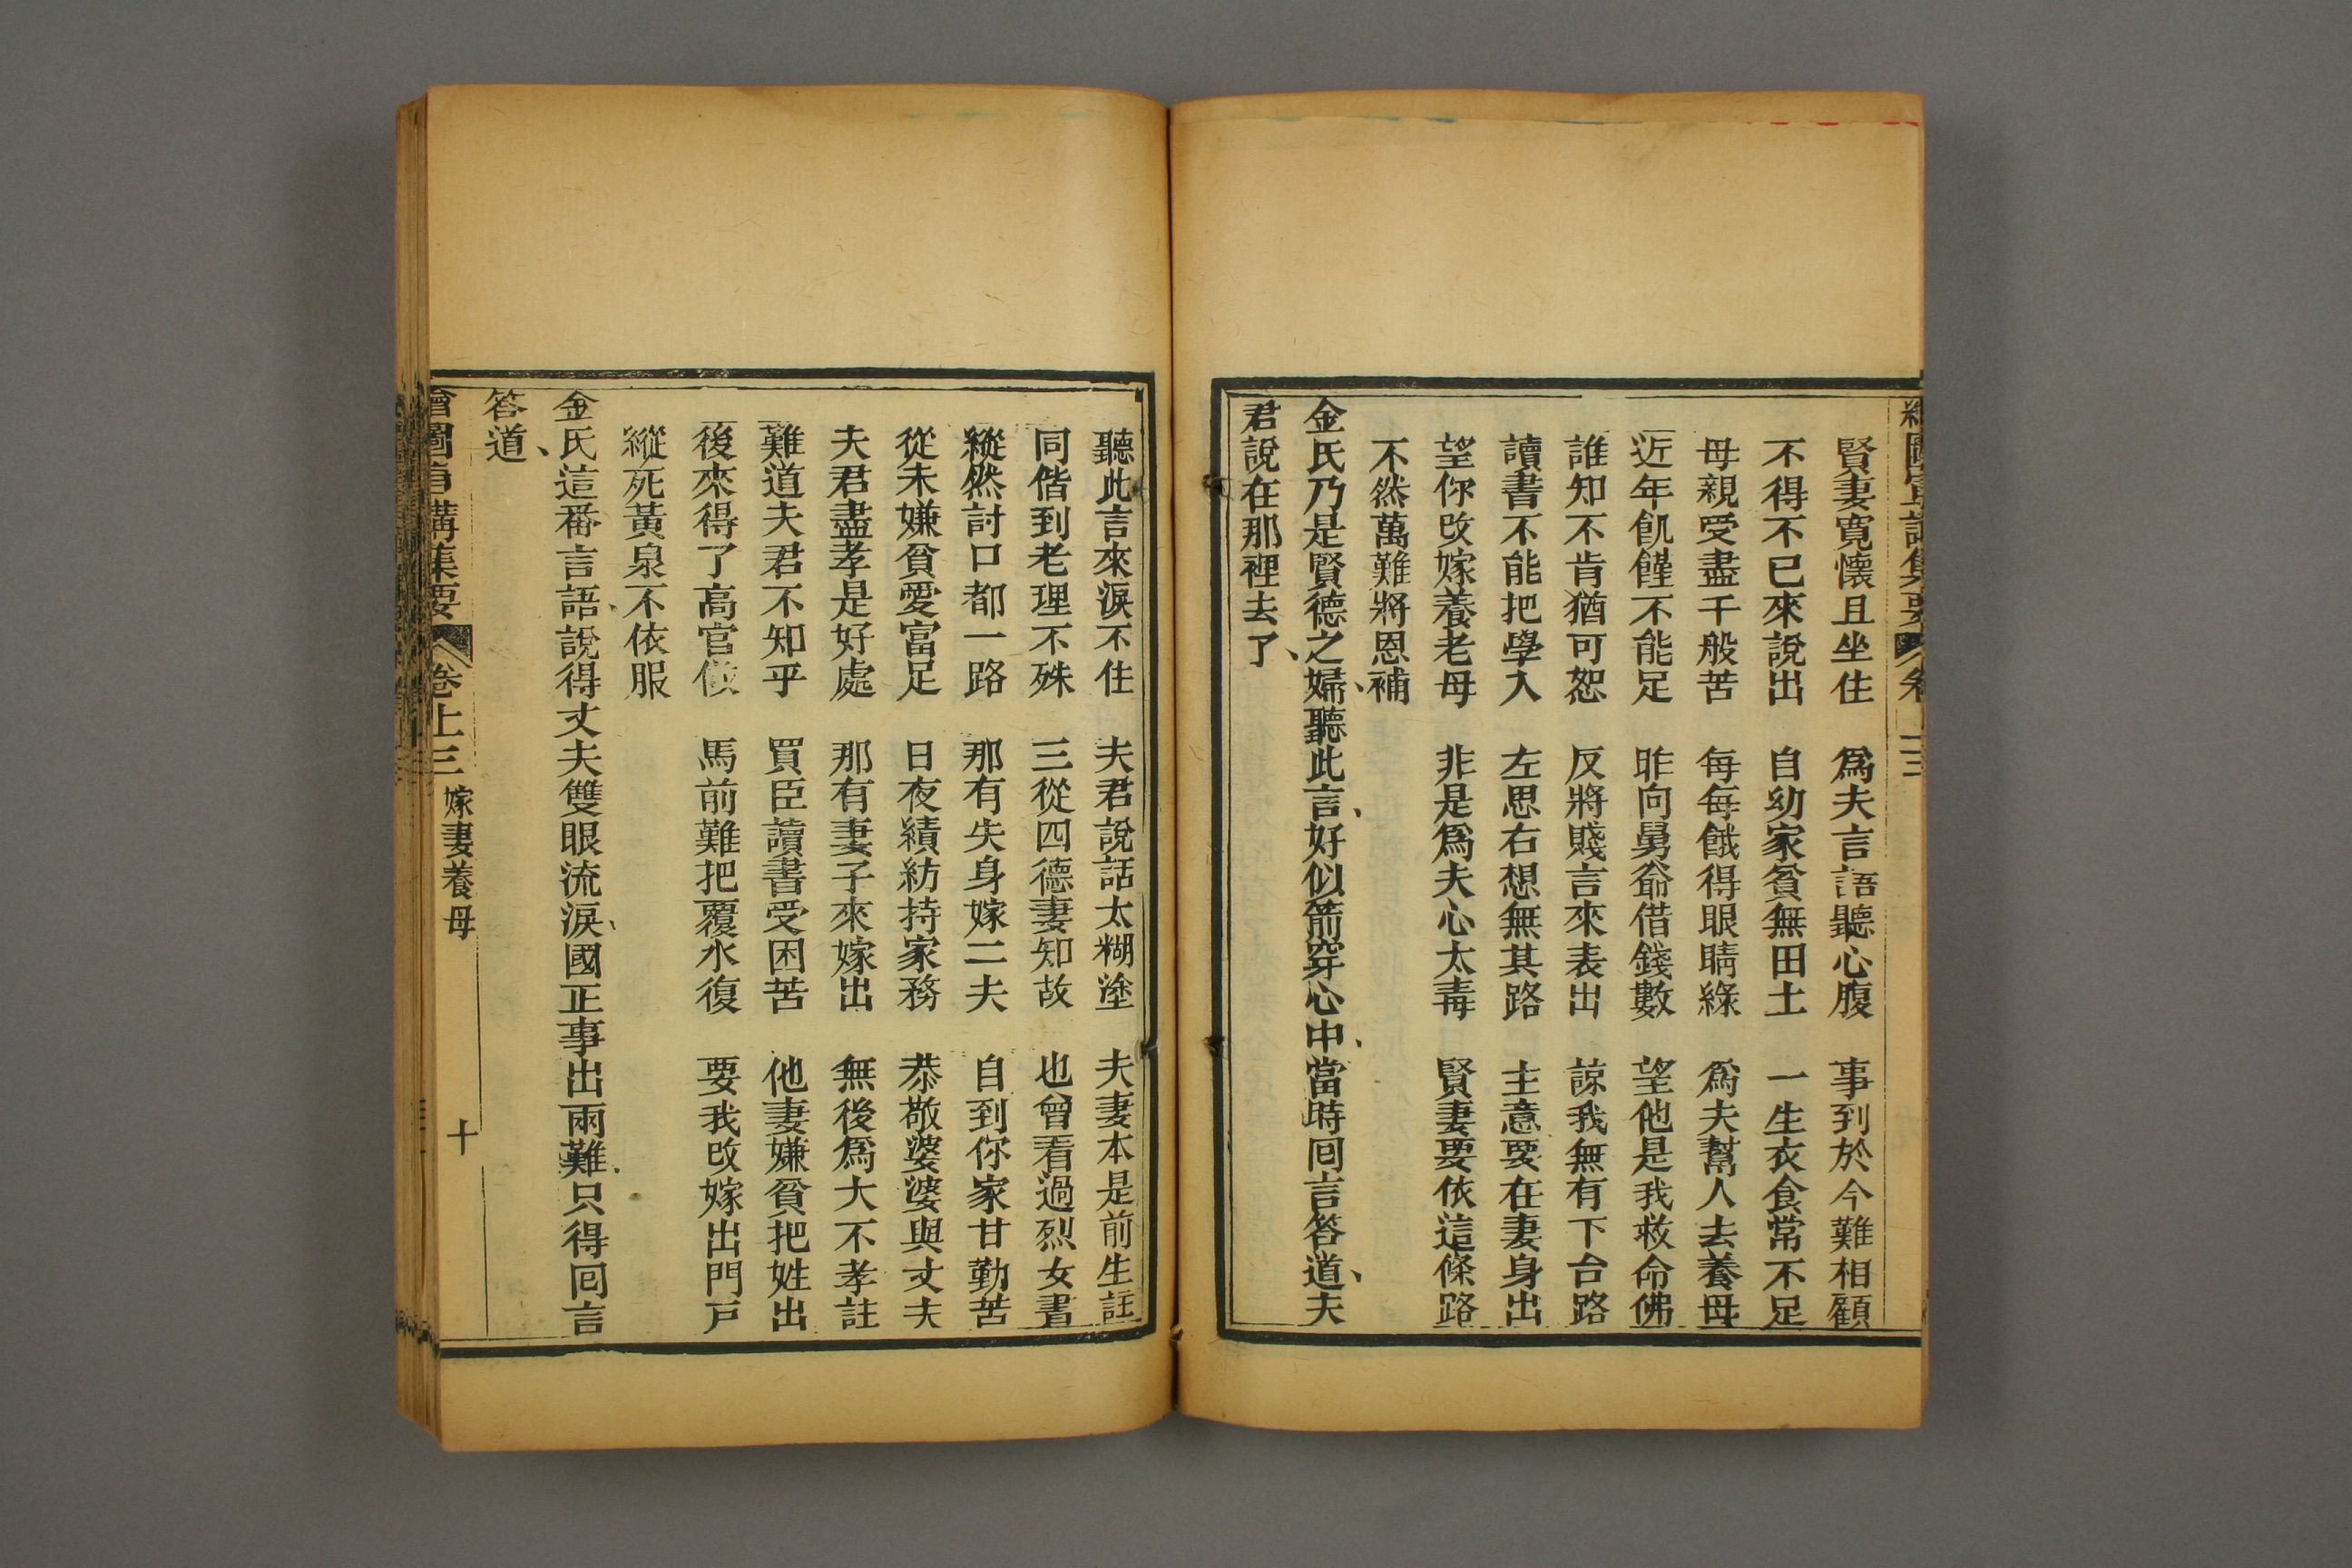 賢妻寬懷且坐住　爲夫言語聽心腹　事到於今難相顧
不得不已來說出　自幼家貧無田土　一生衣食常不足
母親受盡千般苦　每每餓得眼睛綠　爲夫幫人去養母
近年飢饉不能足　昨向舅爺借錢數　望他是我救命佛
誰知不肯猶可恕　反將賤言來表出　諒我無有下台路
讀書不能把學入　左思右想無其路　主意要在妻身出
望你改嫁養老母　非是爲夫心太毒　賢妻要依這條路
不然萬難將恩補
金氏乃是賢德之婦、聽此言、好似箭穿心中、當時回言答道、夫
君說在那裡去了、
聽此言來淚不住　夫君說話太糊塗　夫妻本是前生註
同偕到老理不殊　三從四德妻知故　也曾看過烈女書
縱然討口都一路　那有失身嫁二夫　自到你家甘勤苦
從未嫌貧愛富足　日夜績紡持家務　恭敬婆婆與丈夫
夫君盡孝是好處　那有妻子來嫁出　無後爲大不孝註
難道夫君不知乎　買臣讀書受困苦　他妻嫌貧把姓出
後來得了高官做　馬前難把覆水復　要我改嫁出門戶
縱死黃泉不依服
金氏這番言語、說得丈夫雙眼流淚、國正事出兩難、只得回言
答道、
會圖宣講集要　卷上三　嫁妻養母　十